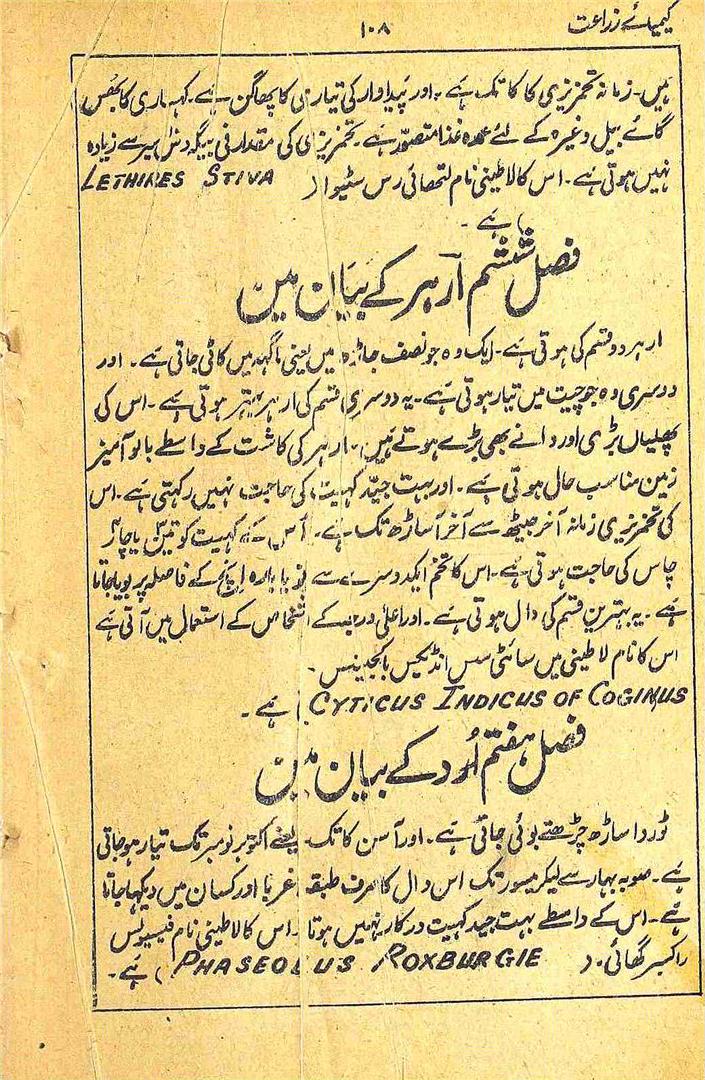 کیمیائے زراعت
۱۰۸
ہیں۔ زمانہ تخمریزی کا کاتک ہے۔ اور پیداوار کی تیاری کا پھاگن ہے۔ کہساری کا بھس
گائے بیل وغیرہ کے لئے عمدہ غذا متصور ہے۔ تخمریزی کی مقدار فی بیگہ دش سیر سے زیادہ
نہیں ہوتی ہے۔ اس کا لاطینی نام لتھائی رس سٹیوا ( LETHIRES STIVA
) ہے۔
فصل ششم ارہر کے بیان میں
ارہر دو قسم کی ہوتی ہے۔ ایک وہ جو نصف جاڑہ میں یعنی ماگہہ میں کاٹی جاتی ہے۔ اور
دوسری وہ جو چیت میں تیار ہوتی ہے۔ یہ دوسری قسم کی ارہر بہتر ہوتی ہے۔ اس کی
پھلیاں بڑی اور دانے بھی بڑے ہوتے ہیں۔ ارہر کی کاشت کے واسطے بالو آمیز
زمین مناسب حال ہوتی ہے۔ اور بہت جید کہیت کی حاجت نہیں رکہتی ہے۔ اس
کی تخمریزی زمانہ آخر جیٹھ سے آخر آساڑھ تک ہے۔ اس کے کہیت کو تین یا چار
چاس کی حاجت ہوتی ہے۔ اس کا تخم ایکدوسرے سے نو یا بارہ اینچ کے فاصلہ پر بویا جاتا
ہے۔ یہ بہترین قسم کی دال ہوتی ہے۔ اور اعلی درجہ کے اشخاص کے استعمال میں آتی ہے
اس کا نام لاطینی میں سائٹی سس انڈیکس یا کجینس۔
(CYTICUS INDICUS OF COGINUS) ہے۔
فصل ہفتم اُرد کے بیان میں
اساڑھ چڑھتے بوئی جاتی ہے۔ اور آسن کاتک یعنے اکتوبر نومبر تک تیار ہوجاتی
ہے۔ صوبہ بہار سے لیکر میسور تک اس دال کا صرف طبقہ غربا اور کسان میں دیکہا جاتا
ہے۔ اس کے واسطے بہت جید کہیت درکار نہیں ہوتا۔ اس کا لاطینی نام فیسیولس
راکسبرگھائی۔ ( PHASEOLUS ROXBURGIE ) ہے۔